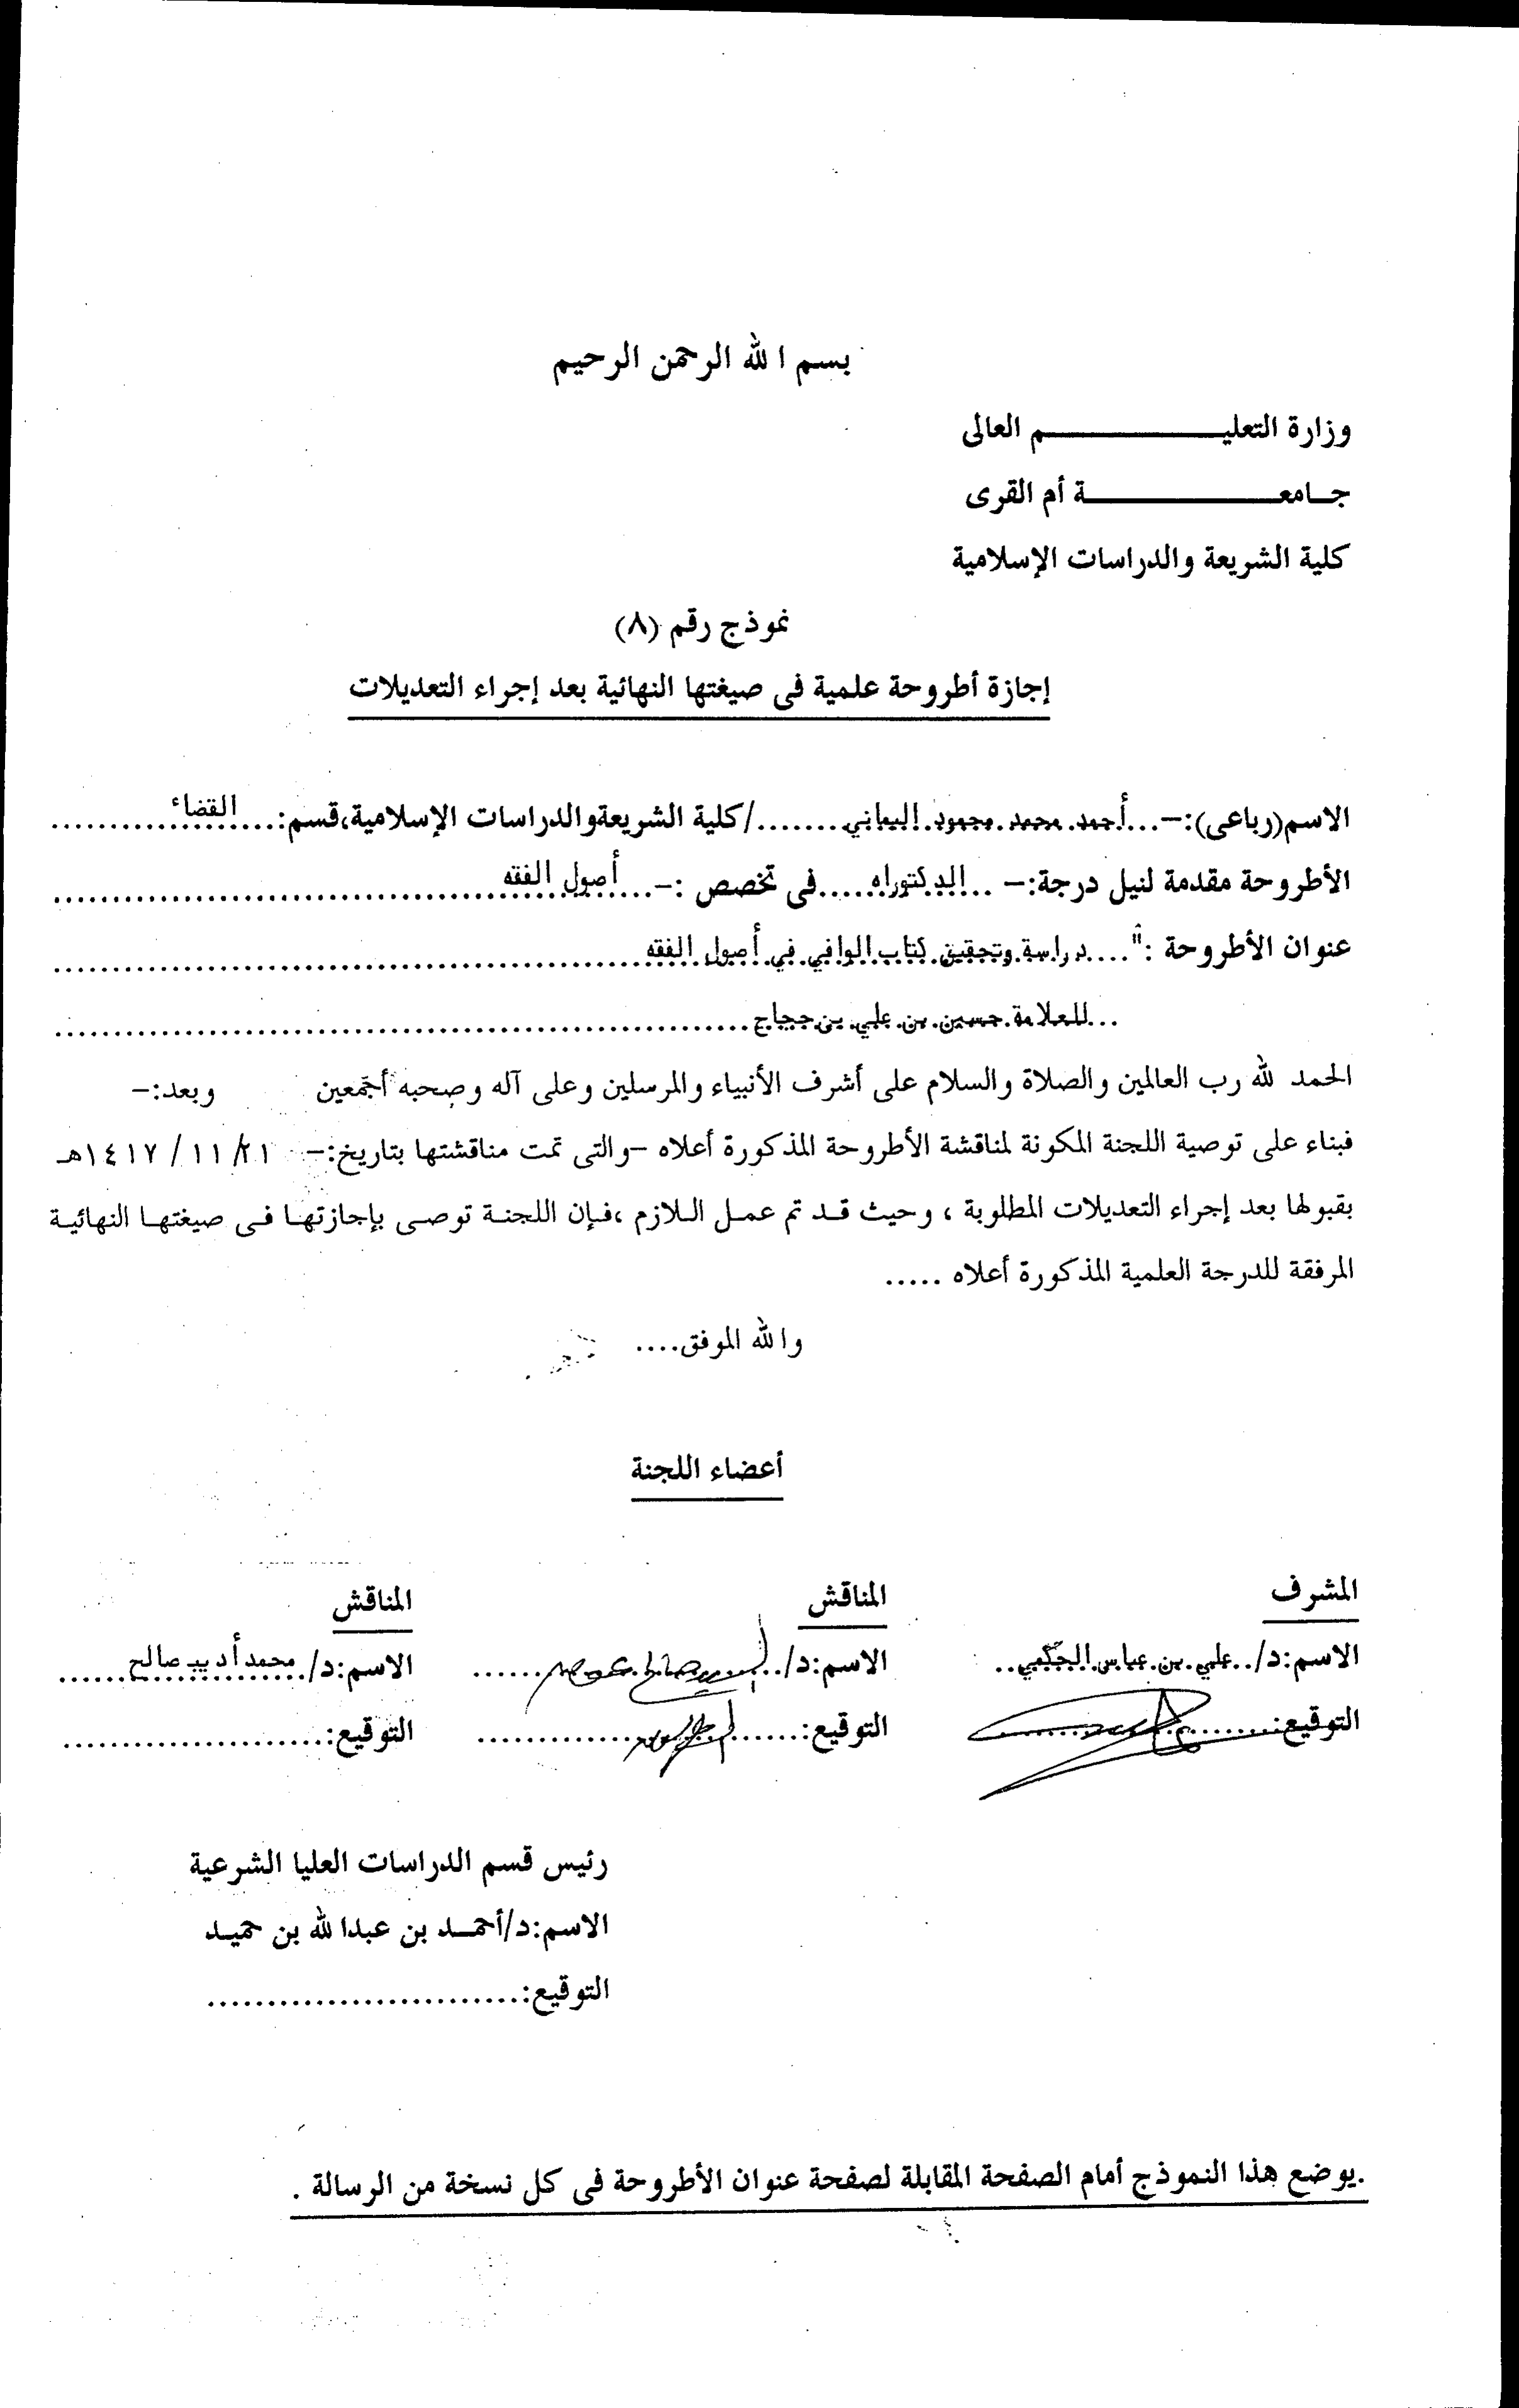 بسم الله الرحمن الرحيم
وزارة التعليـــــــــــم العالى
جـامعـــــــــــة أم القرى
كلية الشريعة والدراسات الإسلامية
نموذج رقم (٨)
إجازة أطروحة علمية فى صيغتها النهائية بعد إجراء التعديلات
الاسم(رباعى):-...أحمد محمد محمود اليماني......./كلية الشريعة والدراسات الإسلامية،قسم:...القضاء..........
الأطروحة مقدمة لنيل درجة:- ..الدكتوراه.....فى تخصص :-...أصول الفقه..............................
عنوان الأطروحة :"....دراسة وتحقيق كتاب الوافي في أصول الفقه..............................
...للعلامة حسين بن علي بن حجاج..............................
الحمد لله رب العالمين والصلاة والسلام على أشرف الأنبياء والمرسلين وعلى آله وصحبه أجمعين وبعد:-
فبناء على توصية اللجنة المكونة لمناقشة الأطروحة المذكورة أعلاه -والتى تمت مناقشتها بتاريخ:- ٢١/ ١١ / ١٤١٧هـ
بقبولها بعد إجراء التعديلات المطلوبة ، وحيث قـد تم عمـل الـلازم ،فـإن اللجنـة توصـى بإجازتهـا فـى صيغتهـا النهائيـة
المرفقة للدرجة العلمية المذكورة أعلاه .....
والله الموفق....
أعضاء اللجنة
المشرف المناقش المناقش
الاسم:د/..علي بن عباس الحكمي.. الاسم:د/.......... الاسم:د/محمد أديب صالح......
التوقيع:.......... التوقيع:.......... التوقيع:......................
رئيس قسم الدراسات العليا الشرعية
الاسم:د/أحمـد بن عبدالله بن حميـد
التوقيع:..........................
.يوضع هذا النموذج أمام الصفحة المقابلة لصفحة عنوان الأطروحة فى كل نسخة من الرسالة .